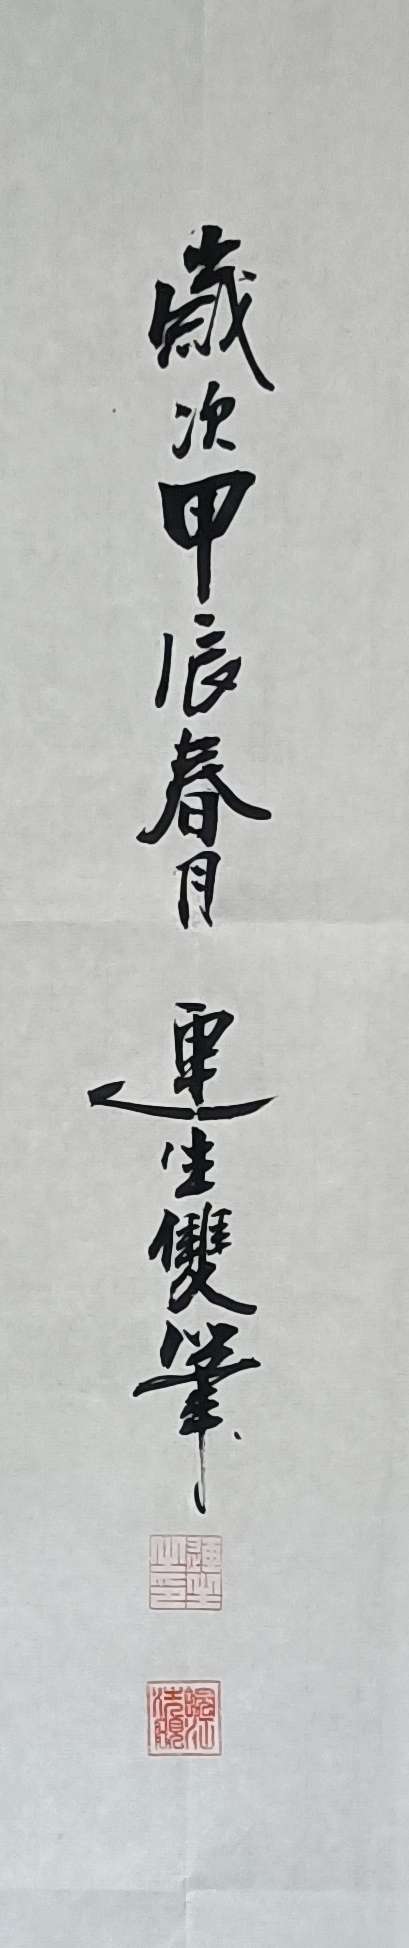 歲次甲辰春月 運生雙筆